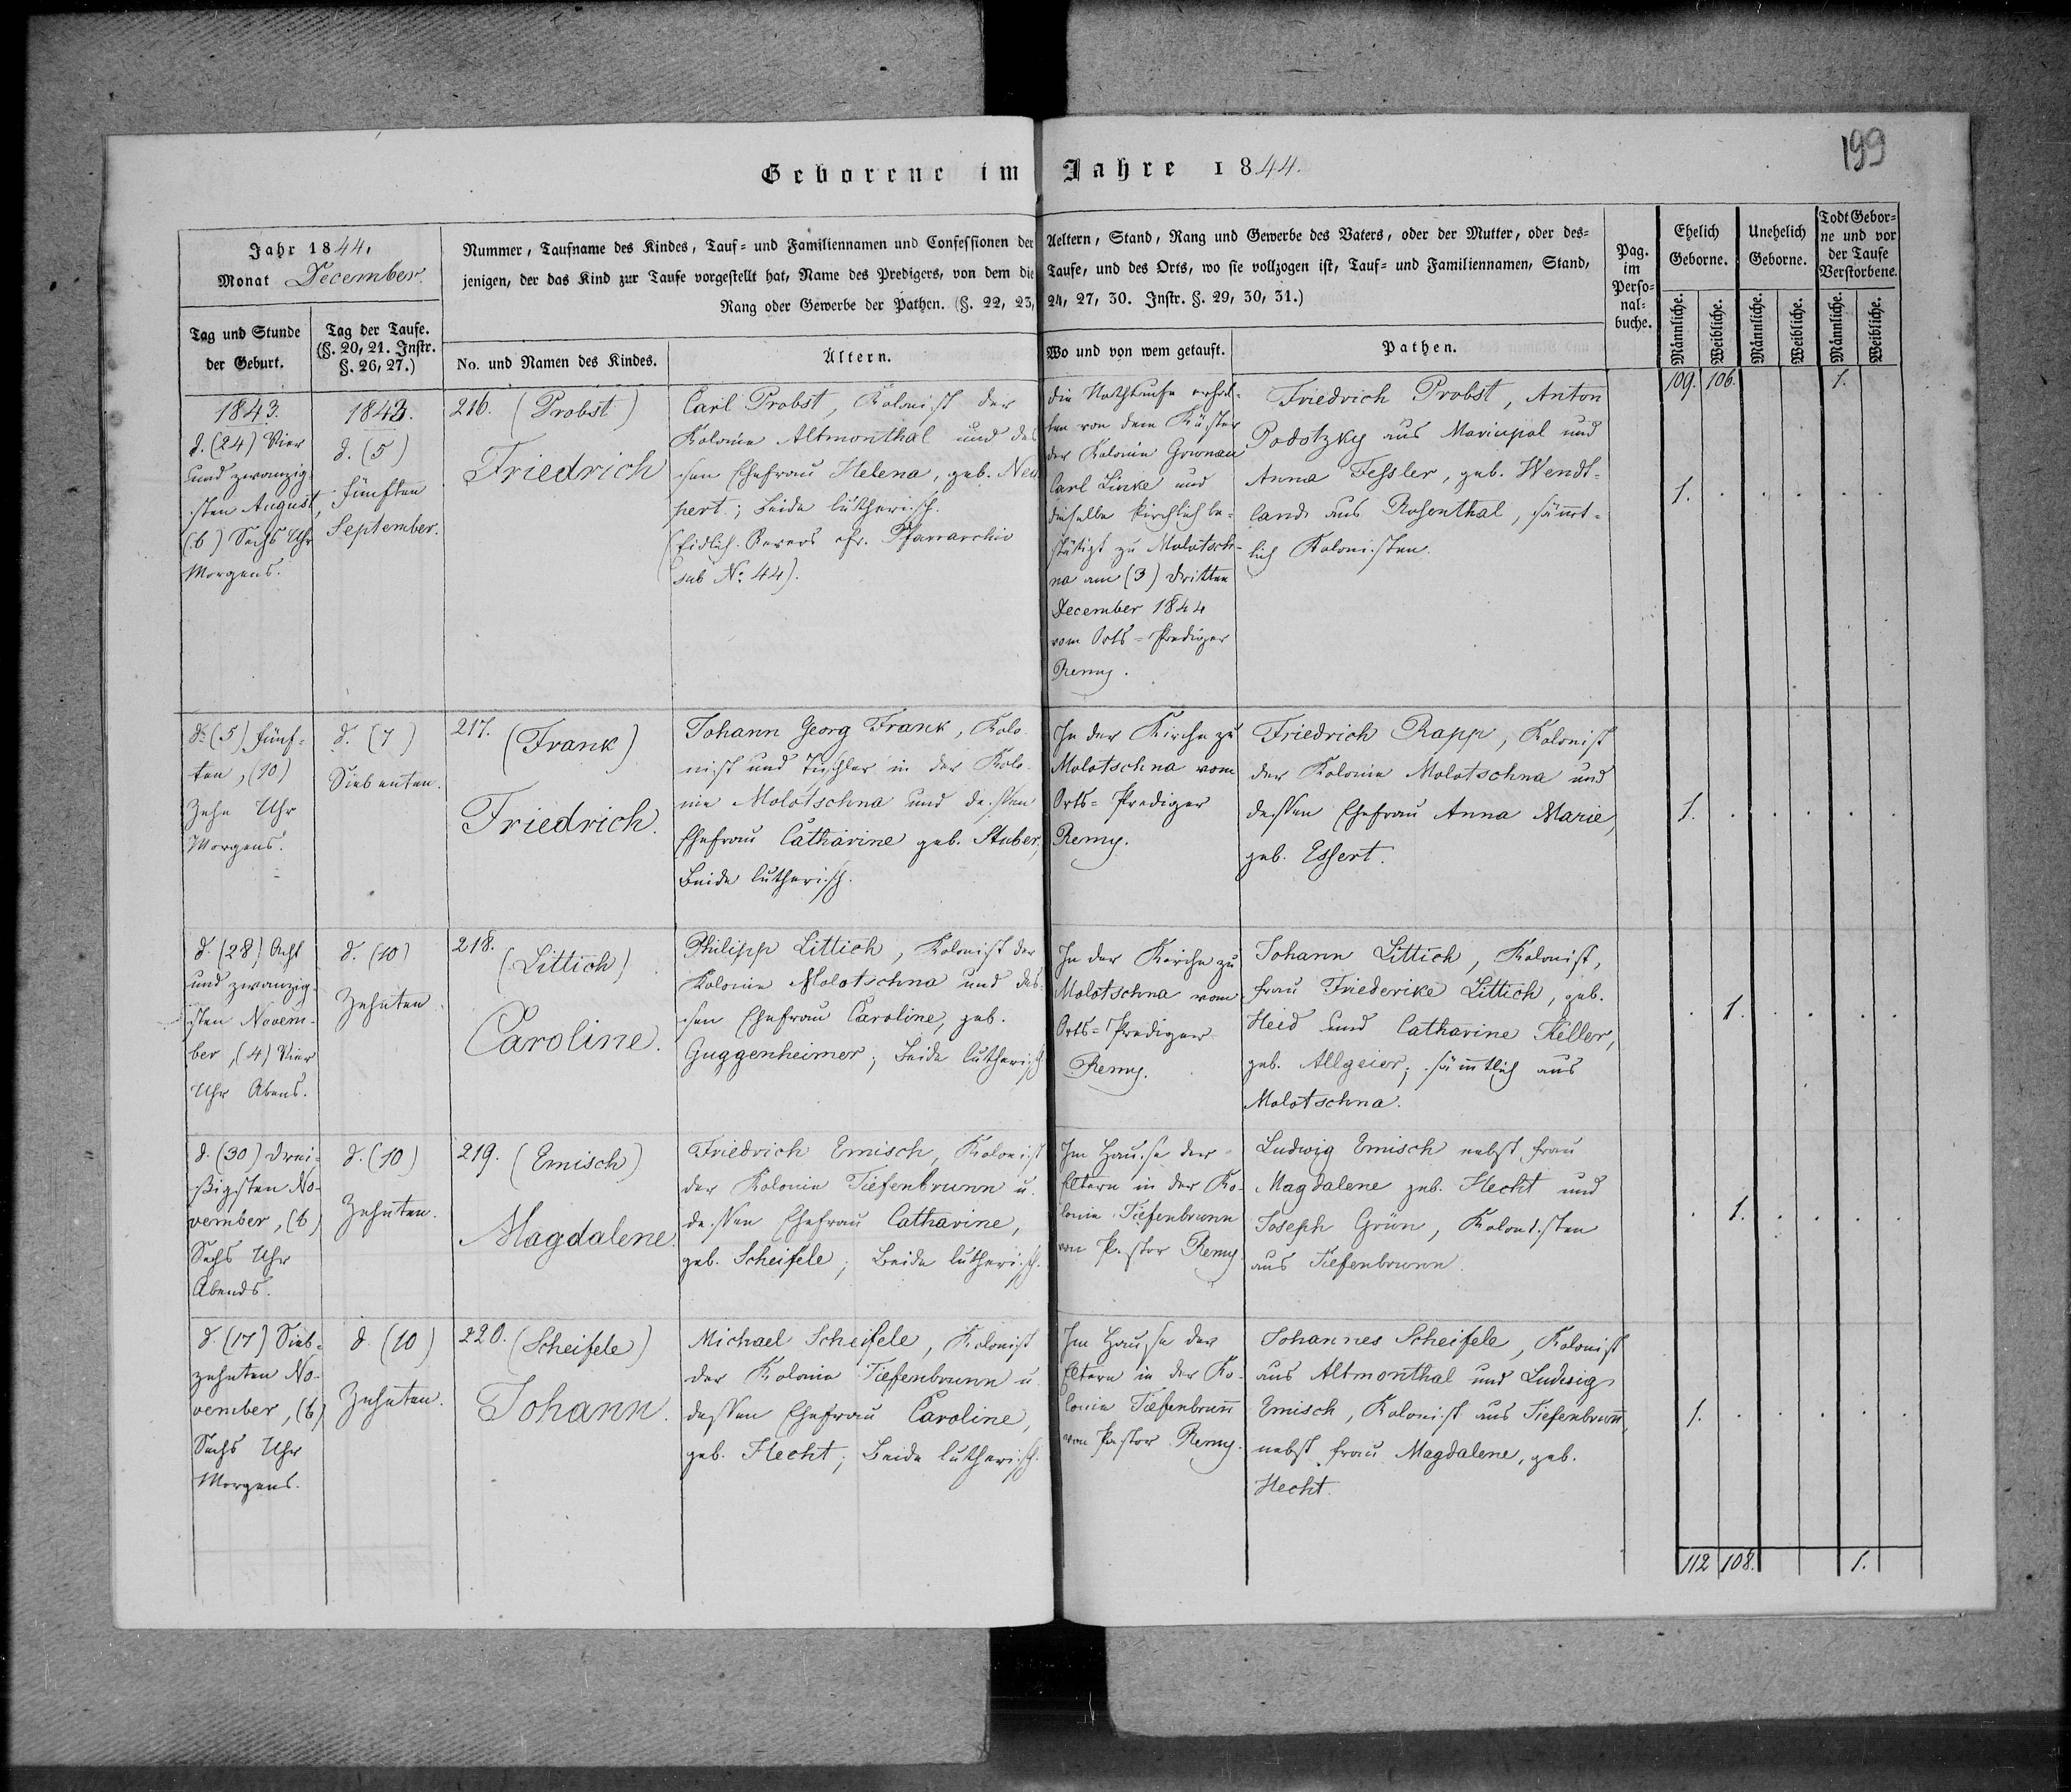 199
Geborene im Jahre 1844.
Jahr 1844.
Monat December.
Nummer, Taufname des Kindes, Tauf- und Familiennamen und Confessionen der Aeltern, Stand, Rang und Gewerbe des Vaters, oder der Mutter, oder des-
jenigen, der das Kind zur Taufe vorgestellt hat, Name des Predigers, von dem die Taufe, und des Orts, wo sie vollzogen ist, Tauf- und Familiennamen, Stand,
Rang oder Gewerbe der Pathen. (§. 22, 23, 24, 27, 30. Instr. §. 29, 30, 31.)
Pag.
im
Perso-
nal-
buche.
Ehelich
Geborne.
Unehelich
Geborne.
Todt Gebor-
ne und vor
der Taufe
Verstorbene.
Männliche.
Weibliche.
Männliche.
Weibliche.
Männliche.
Weibliche.
Tag und Stunde
der Geburt.
Tag der Taufe.
(§. 20, 21. Instr.
§. 26, 27.)
No. und Namen des Kindes.
Ältern.
Wo und von wem getauft.
Pathen.
109. 106. 1.
1843.
d. (24) Vier
und zwanzig-
sten August,
(6) Sechs Uhr
Morgens.
1843.
d. (5)
fünften
September.
216. (Probst)
Friedrich
Carl Probst, Kolonist der
Kolonie Altmonthal und des
sen Ehefrau Helena, geb. Neu
pert; Beide lutherisch.
(Eidlich. Revers cfr. Pfarrarchiv
sub No: 44).
die Nothtaufe erhal-
ten von dem Küster
der Kolonie Grunau
Carl Linke und
dieselbe kirchlich be-
stätigt zu Molotsch-
na am (3) dritten
December 1844
vom Orts-Prediger
Remy.
Friedrich Probst, Anton
Podotzky aus Mariupol und
Anna Fessler, geb. Wendt-
land aus Rosenthal, sämt-
lich Kolonisten.
1.
d. (5) fünf-
ten, (10)
Zehn Uhr
Morgens.
d. (7)
Siebenten.
217. (Frank)
Friedrich.
Johann Georg Frank, Kolo-
nist und Tischler in der Kolo-
nie Molotschna und dessen
Ehefrau Catharine geb. Stuber,
Beide lutherisch.
In der Kirche zu
Molotschna vom
Orts-Prediger
Remy.
Friedrich Rapp, Kolonist
der Kolonie Molotschna und
dessen Ehefrau Anna Marie,
geb. Essert.
1.
d. (28) Acht
und zwanzig-
sten Novem-
ber, (4) Vier
Uhr Abens.
d. (10)
Zehnten.
218. (Littich)
Caroline.
Philipp Littich, Kolonist der
Kolonie Molotschna und des-
sen Ehefrau Caroline, geb.
Guggenheimer; Beide lutherisch
In der Kirche zu
Molotschna vom
Orts-Prediger
Remy.
Johann Littich, Kolonist,
frau Friederike Littich, geb.
Heid und Catharine Keller,
geb. Allgeier; sämtlich aus
Molotschna.
1.
d. (30) Drei-
ßigsten No-
vember, (6)
Sechs Uhr
Abends.
d. (10)
Zehnten.
219. (Emisch)
Magdalene.
Friedrich Emisch, Kolonist
der Kolonie Tiefenbrunn u.
dessen Ehefrau Catharine,
geb. Scheifele; Beide lutherisch.
Im Hause der
Eltern in der Ko-
lonie Tiefenbrunn
von Pastor Remy
Ludwig Emisch nebst frau
Magdalene geb. Hecht und
Joseph Grün, Kolonisten
aus Tiefenbrunn.
1.
d. (17) Sieb-
zehnten No-
vember, (6)
Sechs Uhr
Morgens.
d. (10)
Zehnten.
220. (Scheifele)
Johann.
Michael Scheifele, Kolonist
der Kolonie Tiefenbrunn u.
dessen Ehefrau Caroline,
geb. Hecht; Beide lutherisch.
Im Hause der
Eltern in der Ko-
lonie Tiefenbrunn
von Pastor Remy.
Johannes Scheifele, Kolonist
aus Altmonthal und Ludwig
Emisch, Kolonist aus Tiefenbrunn,
nebst frau Magdalene, geb.
Hecht.
1.
112 108. 1.